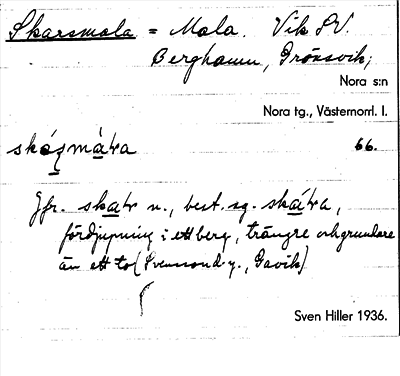 Skarsmola = Mola. Vik SV.
Berghamn, Grönsvik,
Nora s:n
Nora tg., Västernorrl. l.
66.
Jfr. skatr n., best. sg. skátra,
fördjupning i ett berg, trängre och grundare
än ett to (Svensson d.y., Gavik)
Sven Hiller 1936.